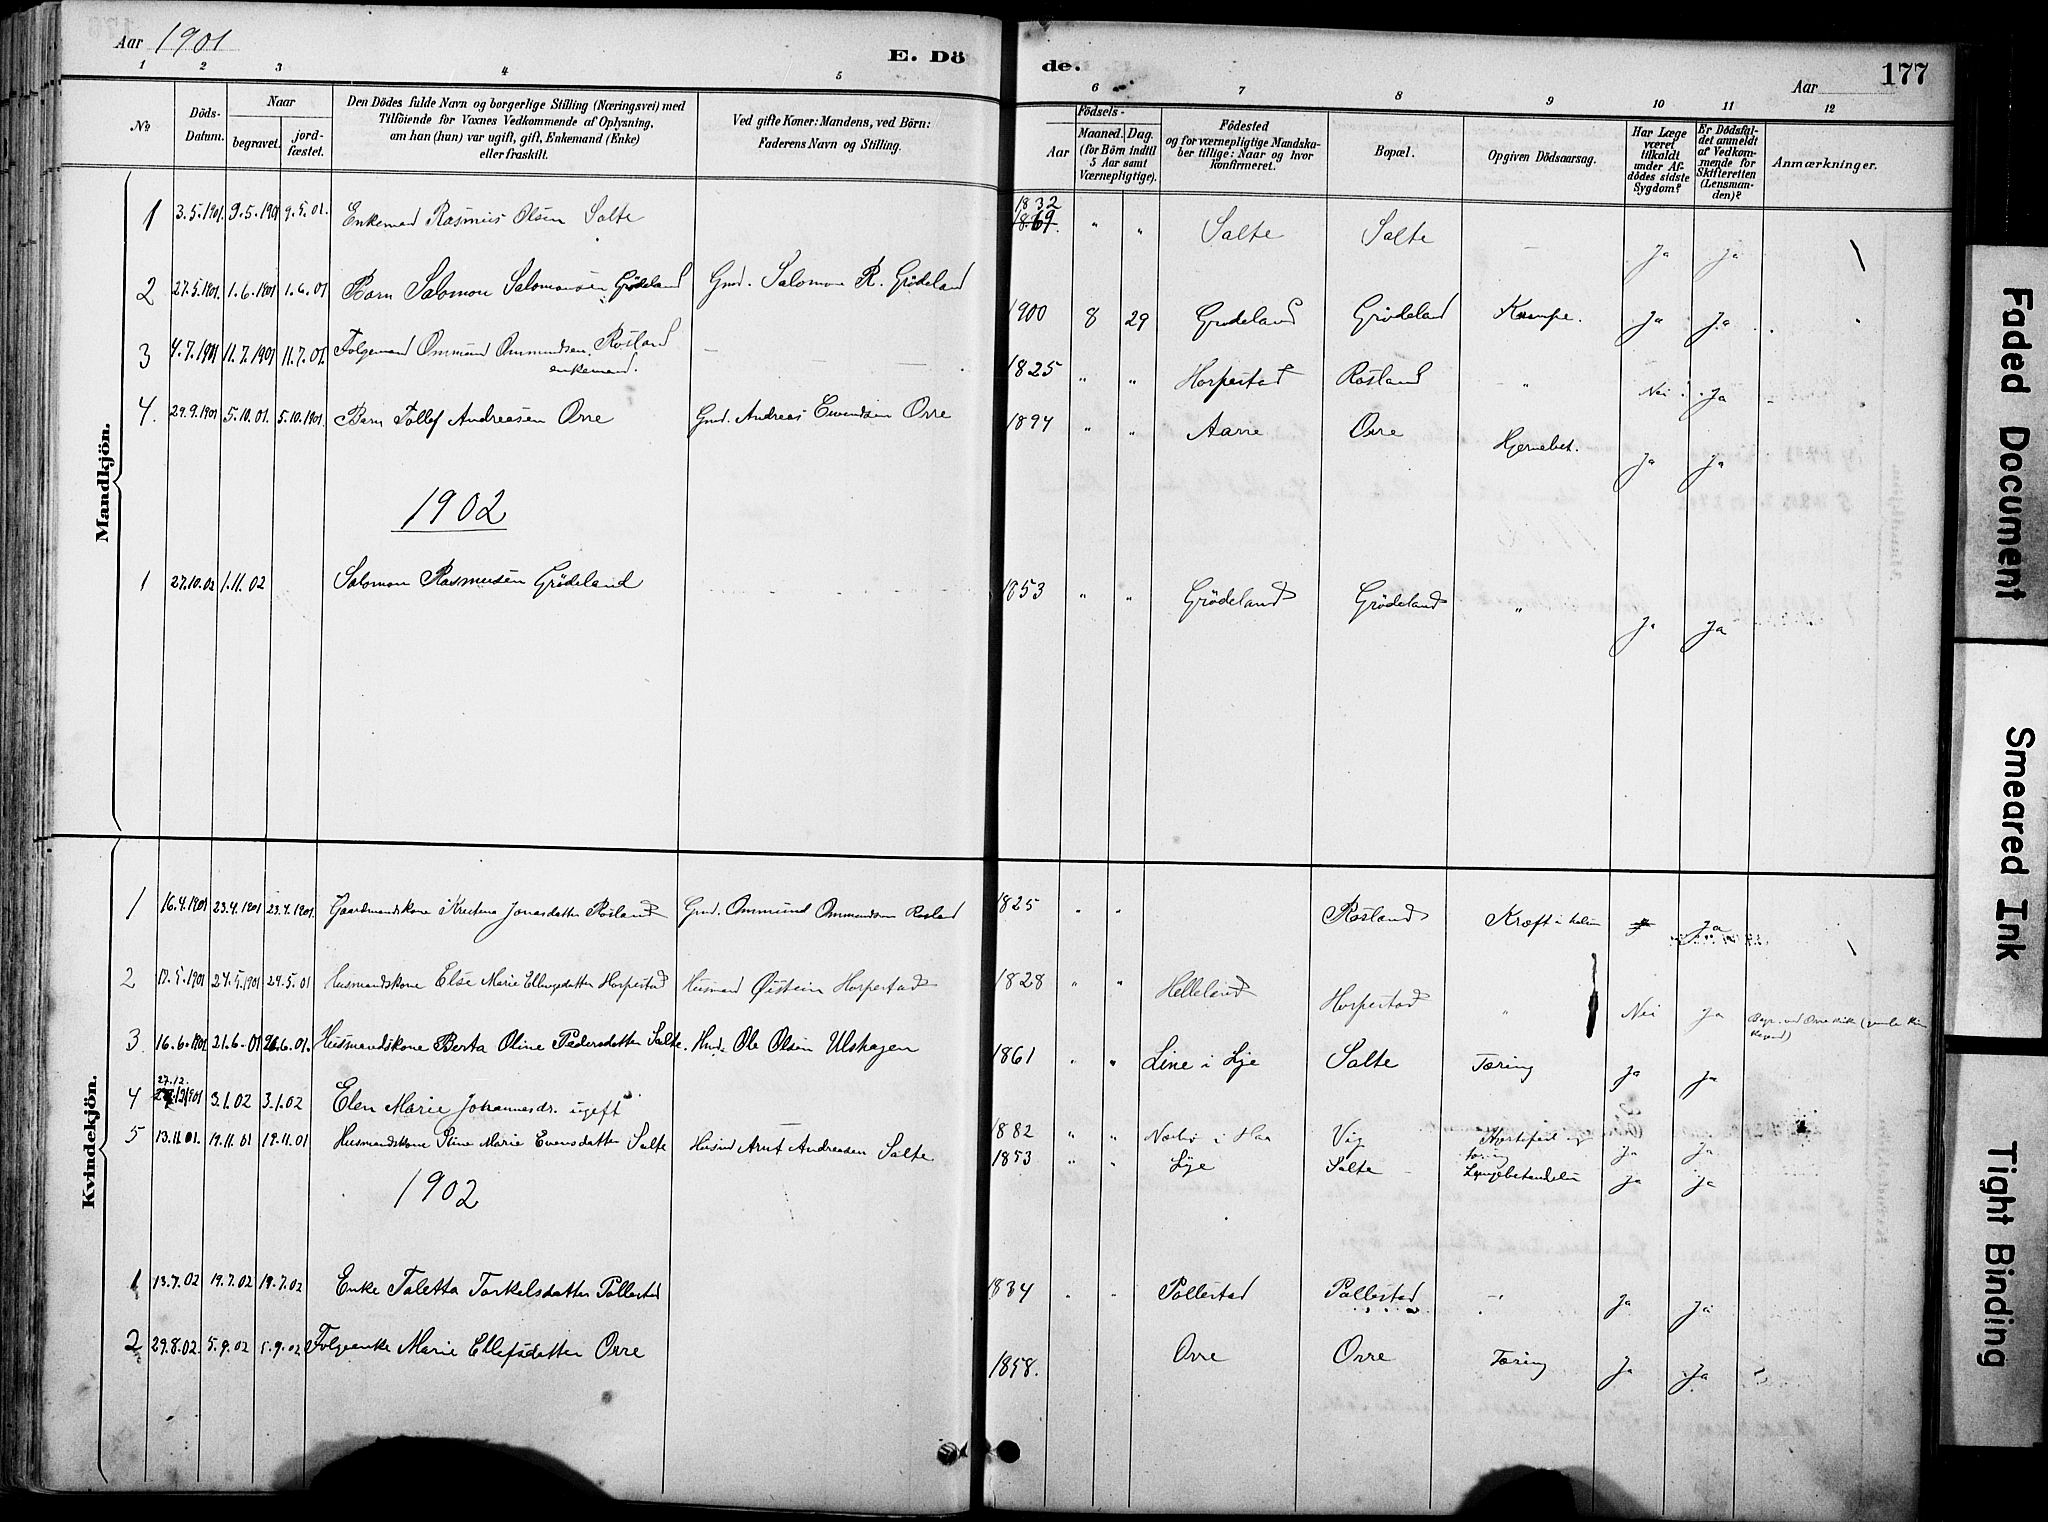 Aar 1901
E. Döde.
Aar 177
1 2 3 4 5 6 7 8 9 10 11 12
№
Döds-Datum.
Naar
begravet. jord-fæstet.
Den Dödes fulde Navn og borgerlige Stilling (Næringsvei) med
Tilföiende for Voxnes Vedkommende af Oplysning,
om han (hun) var ugift, gift, Enkemand (Enke)
eller fraskilt.
Ved gifte Koner: Mandens, ved Börn:
Faderens Navn og Stilling.
Födsels-
Aar Maaned. Dag.
(for Börn indtil
5 Aar samt
Værnepligtige).
Födested
og for værnepligtige Mandska-
ber tillige: Naar og hvor
konfirmeret.
Bopæl.
Opgiven Dödsaarsag.
Har Læge
været
tilkaldt
under Af-
dödes sidste
Sygdom?
Er Dödsfal-
det anmeldt
af Vedkom-
mende for
Skifteretten
(Lensman-
den)?
Anmærkninger.
Mandkjön.
1 3.5.1901. 9.5.1901 9.5.01. Enkemand Rasmus Olsen Salte 1832 1869. " " Salte Salte — Ja Ja
2 27.5.1901. 1.6.1901 1.6.01 Barn Salomon Salomonsen Grödeland Gmd. Salomon R. Grödeland 1900 8 29 Grödeland Grödeland Krampe. Ja Ja
3 4.7.1901 11.7.1901 11.7.01. Folgemand Ommund Ommundsen Rosland — 1825 " " Horpestad Rosland " Nei Ja
enkemand.
4. 29.9.1901 5.10.01. 5.10.1901. Barn Tollef Andreasen Orre Gmd. Andreas Evendsen Orre 1894 " " Aarre Orre Hjernebet. Ja Ja
1902
1 27.10.02 1.11.02 Salomon Rasmussen Grödeland 1853 " " Grödeland Grödeland " Ja Ja
Kvindekjön.
1 16.4.1901 23.4.1901 23.4.1901. Gaardmandskone Kristina Jonasdatter Rosland Gmd. Ommund Ommundsen Rosland 1825 " " Rosland Kræft i Ja
2 17.5.1901 24.5.1901 24.5.01 Husmandskone Else Marie Ellingsdatter Horpestad Husmand Östein Horpestad 1828 " " Helleland Horpestad " Nei Ja Begr. ved Orre kirke (gamle
3. 16.6.1901 21.6.01 26.6.01. Husmandskone Berta Oline Pedersdatter Salte. Husmd. Ole Olsen Ulshagen 1861 " " Line i Lye Salte Tæring Ja Ja
4 27.12. 1901 3.1.02 3.1.02 Elen Marie Johannesdr. ugift 1882 " " Nærbö i Haa Vig Hjertefeil og Tæring Ja Ja
5 13.11.01. 19.11.01 19.11.01 Husmandskone Stine Marie Evensdatter Salte Husmd Arnt Andreasen Salte 1853 " " Lye Salte Lungebetændelse Ja Ja
1902
1 13.7.02 19.7.02 19.7.02 Enke Taletta Torkelsdatter Pollestad 1834 " " Pollestad Pollestad — Ja Ja
2 29.8.02. 5.9.02 5.9.02 Folgeenke Marie Ellefsdatter Orre 1858. Orre Orre Tæring Ja Ja
Faded Document
Smeared Ink
Tight Binding